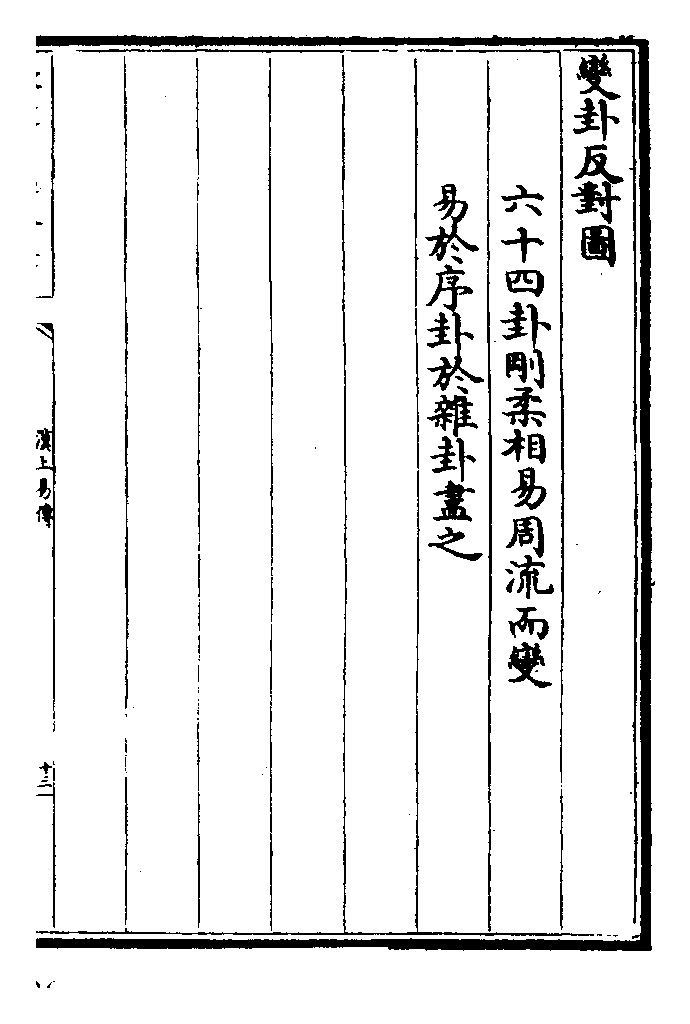 變卦反對圖
六十四卦剛柔相易周流而變
易於序卦於雜卦盡之
漢上易傳
十三